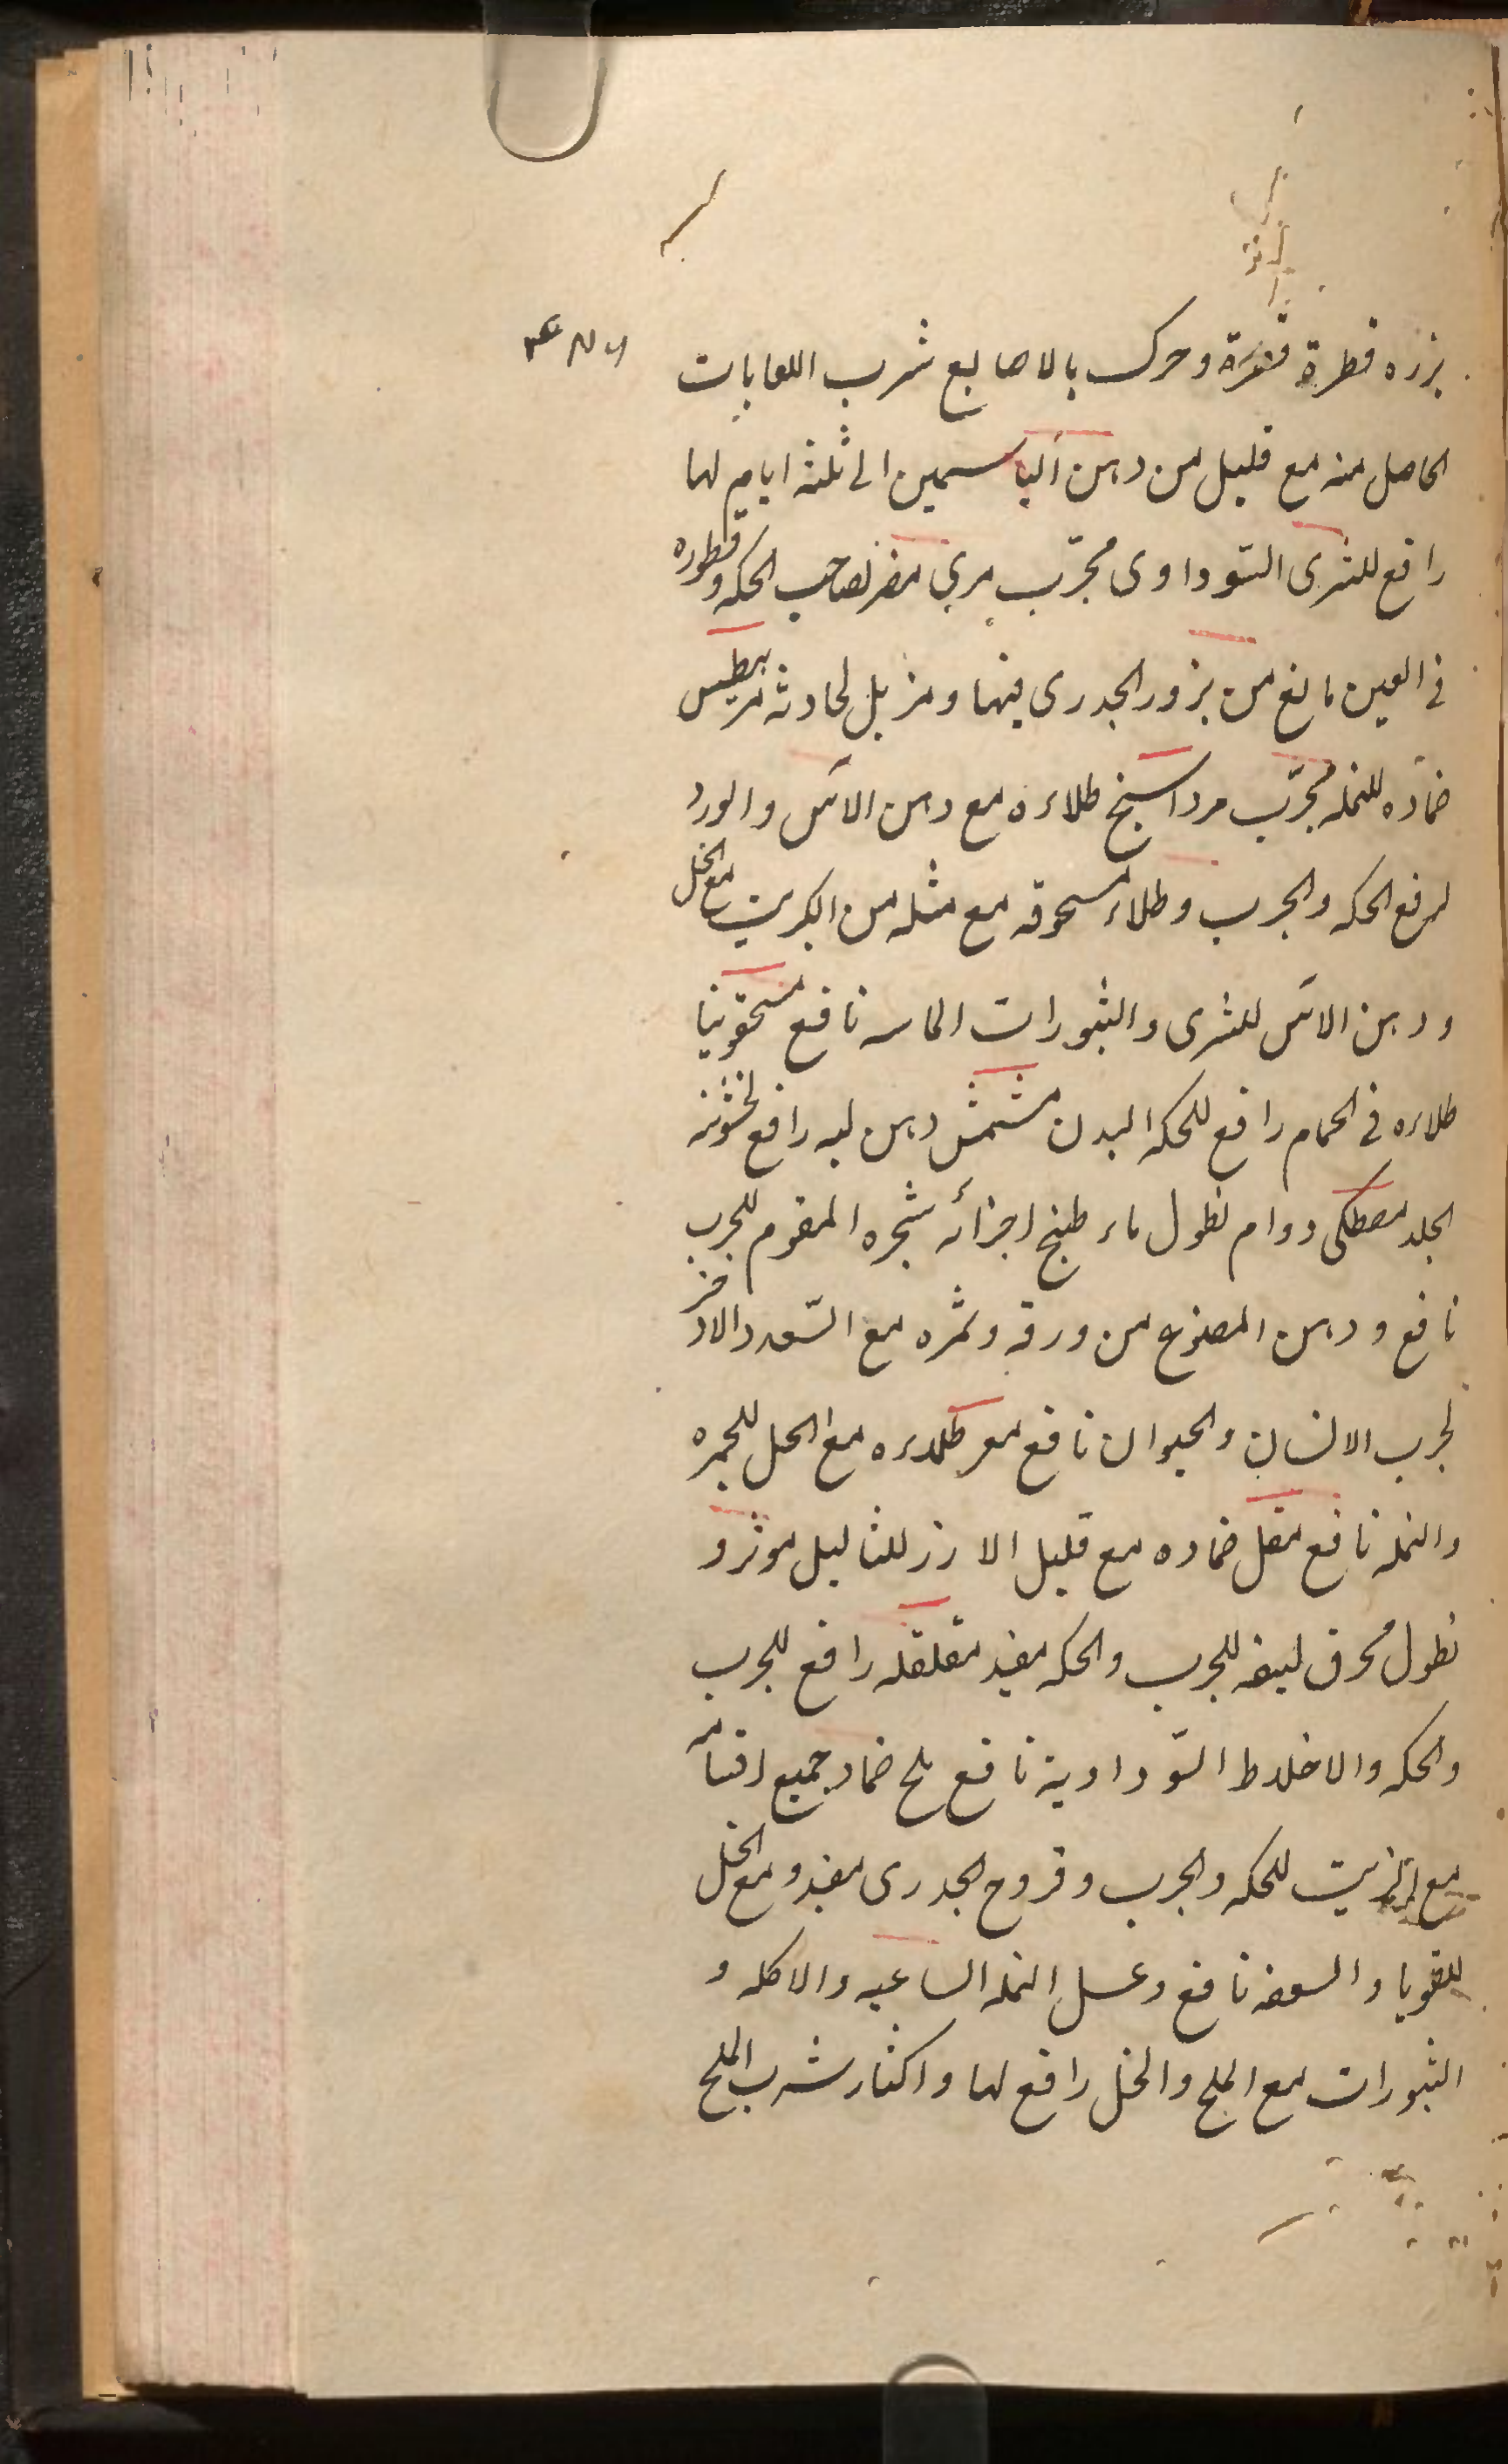 بزره قطرة قطرة وحرک بالاصابع شرب اللعابات
الحاصل منه مع قلیل من دهن الیاسمین الی ثلثة ایام لها
رافع للشری السّوداوی مجرّب مری مضر لصاحب الحکه وقطوره
فی العین مانع من بزور الجدری فیها ومزیل لحادثه مرطیس
ضماده للنمله مجرّب مرداسنج طلاءه مع دهن الآس والورد
لرفع الحکه والجرب وطلاء مسحوقه مع مثله من الکبریت مع الخل
ودهن الآس للشری والبثورات نافع مسحقونیا
طلاءه فی الحمام رافع للحکه البدن مشمش دهن لبه رافع لخشونه
الجلد مصطکی دوام نطول ماء طبیخ اجزائه شجره المقوم للجرب
نافع ودهن المصنوع من ورقه وثمره مع السّعد والاذخر
لجرب الانسان والحیوان نافع مغر طلاءه مع الخل للحمره
والنمله نافع مقل ضماده مع قلیل الارز للثالیل موثر و
نطول محرق لیفه للجرب والحکه مفید مقلقله رافع للجرب
والحکه والاخلاط السّوداویة نافع ملح ضماد جمیع اقسامه
مع الزیت للحکه والجرب وقروح الجدری مفید ومع الخل
للقوبا والسعفه نافع وغسل النمله الساعیه والاکله و
البثورات مع الملح والخل رافع لها واکثار شرب الملح